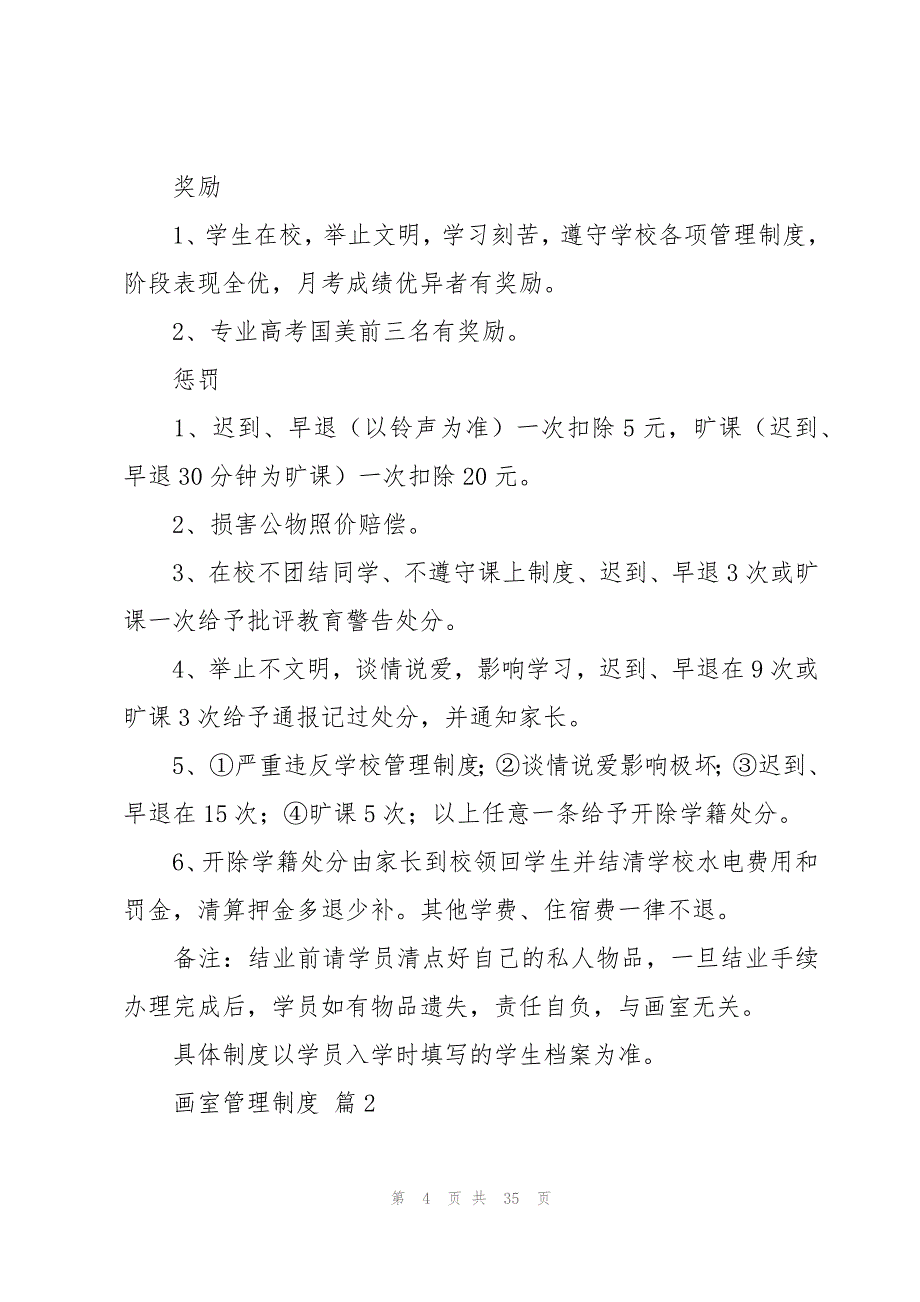 奖励
1、学生在校，举止文明，学习刻苦，遵守学校各项管理制度，
阶段表现全优，月考成绩优异者有奖励。
2、专业高考国美前三名有奖励。
惩罚
1、迟到、早退（以铃声为准）一次扣除 5 元，旷课（迟到、
早退 30 分钟为旷课）一次扣除 20 元。
2、损害公物照价赔偿。
3、在校不团结同学、不遵守课上制度、迟到、早退 3 次或旷
课一次给予批评教育警告处分。
4、举止不文明，谈情说爱，影响学习，迟到、早退在 9 次或
旷课 3 次给予通报记过处分，并通知家长。
5、①严重违反学校管理制度；②谈情说爱影响极坏；③迟到、
早退在 15 次；④旷课 5 次；以上任意一条给予开除学籍处分。
6、开除学籍处分由家长到校领回学生并结清学校水电费用和
罚金，清算押金多退少补。其他学费、住宿费一律不退。
备注：结业前请学员清点好自己的私人物品，一旦结业手续
办理完成后，学员如有物品遗失，责任自负，与画室无关。
具体制度以学员入学时填写的学生档案为准。
画室管理制度 篇 2
第 4 页 共 35 页